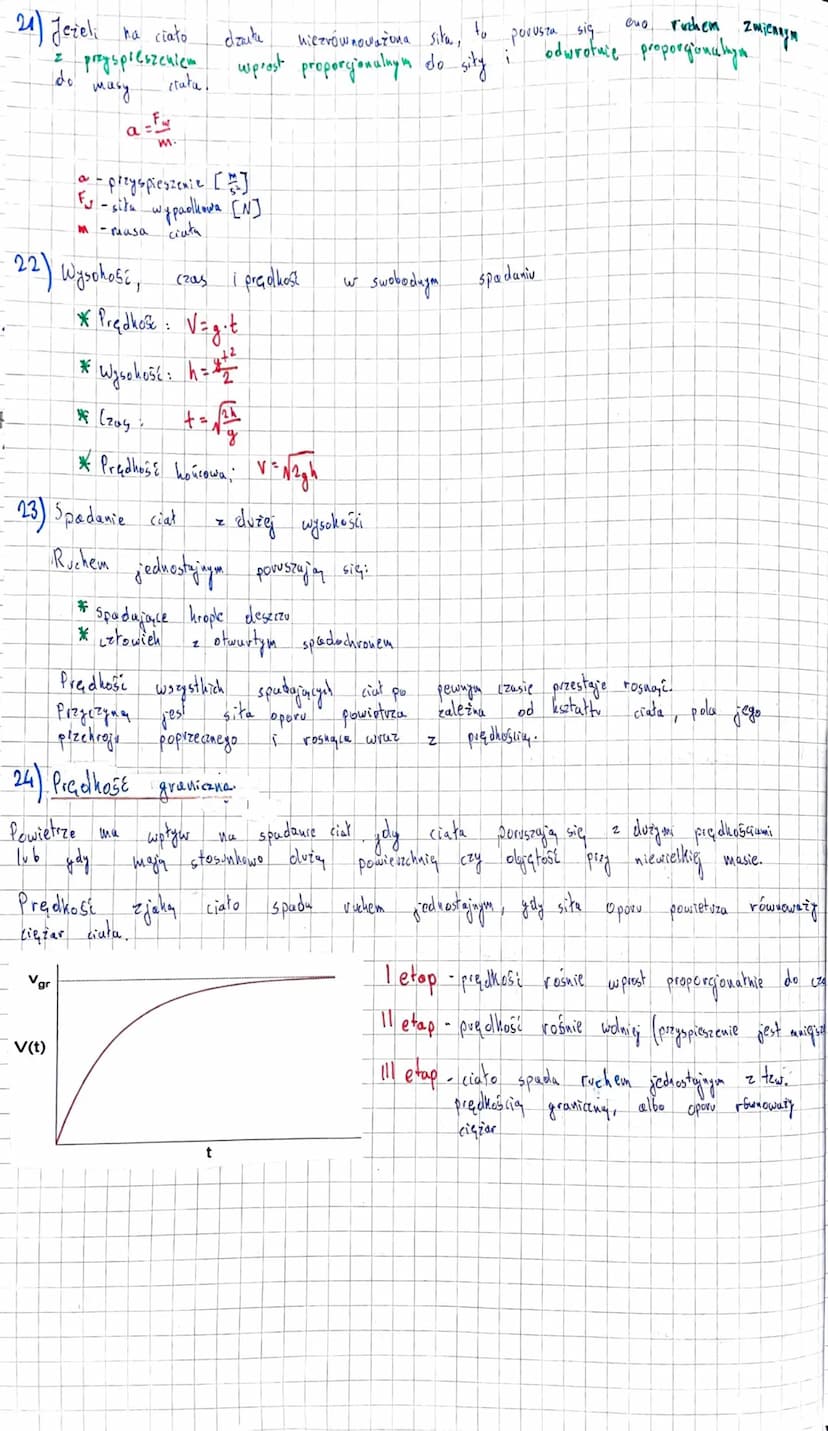 21) Jeżeli na ciało działa niezrównoważona siła, to porusza się ono ruchem zmiennym
z przyspieszeniem wprost proporcjonalnym do siły i odwrotnie proporcjonalnym
do masy ciała.
a = Fw/m.
a - przyspieszenie [m/s²]
Fw - siła wypadkowa [N]
m - masa ciała
22) Wysokość, czas i prędkość w swobodnym spadaniu
* Prędkość: V = g·t
* Wysokość: h = gt²/2
* Czas: t = √2h/g
* Prędkość końcowa: V = √2gh
23) Spadanie ciał z dużej wysokości
Ruchem jednostajnym poruszają się:
* spadające krople deszczu
* człowiek z otwartym spadochronem
Prędkość wszystkich spadających ciał po pewnym czasie przestaje rosnąć.
Przyczyną jest siła oporu powietrza zależna od kształtu ciała, pola jego
przekroju poprzecznego i rosnąca wraz z prędkością.
24) Prędkość graniczna.
Powietrze ma wpływ na spadanie ciał gdy ciała poruszają się z dużymi prędkościami
lub gdy mają stosunkowo dużą powierzchnię czy objętość przy niewielkiej masie.
Prędkość z jaką ciało spada ruchem jednostajnym, gdy siła oporu powietrza równoważy
ciężar ciała.
Vgr
V(t)
t
I etap - prędkość rośnie wprost proporcjonalnie do
II etap - prędkość rośnie wolniej (przyspieszenie jest
III etap - ciało spada ruchem jednostajnym z tzw.
prędkością graniczną, albo oporu równoważy
ciężar